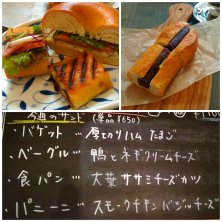 今週のサンド (単品 ¥650)
・バゲット … 厚切りハム たまご
・ベーグル … 鴨とネギクリームチーズ
・食パン … 大葉ササミチーズカツ
・パニーニ … スモークチキンバジルチーズ